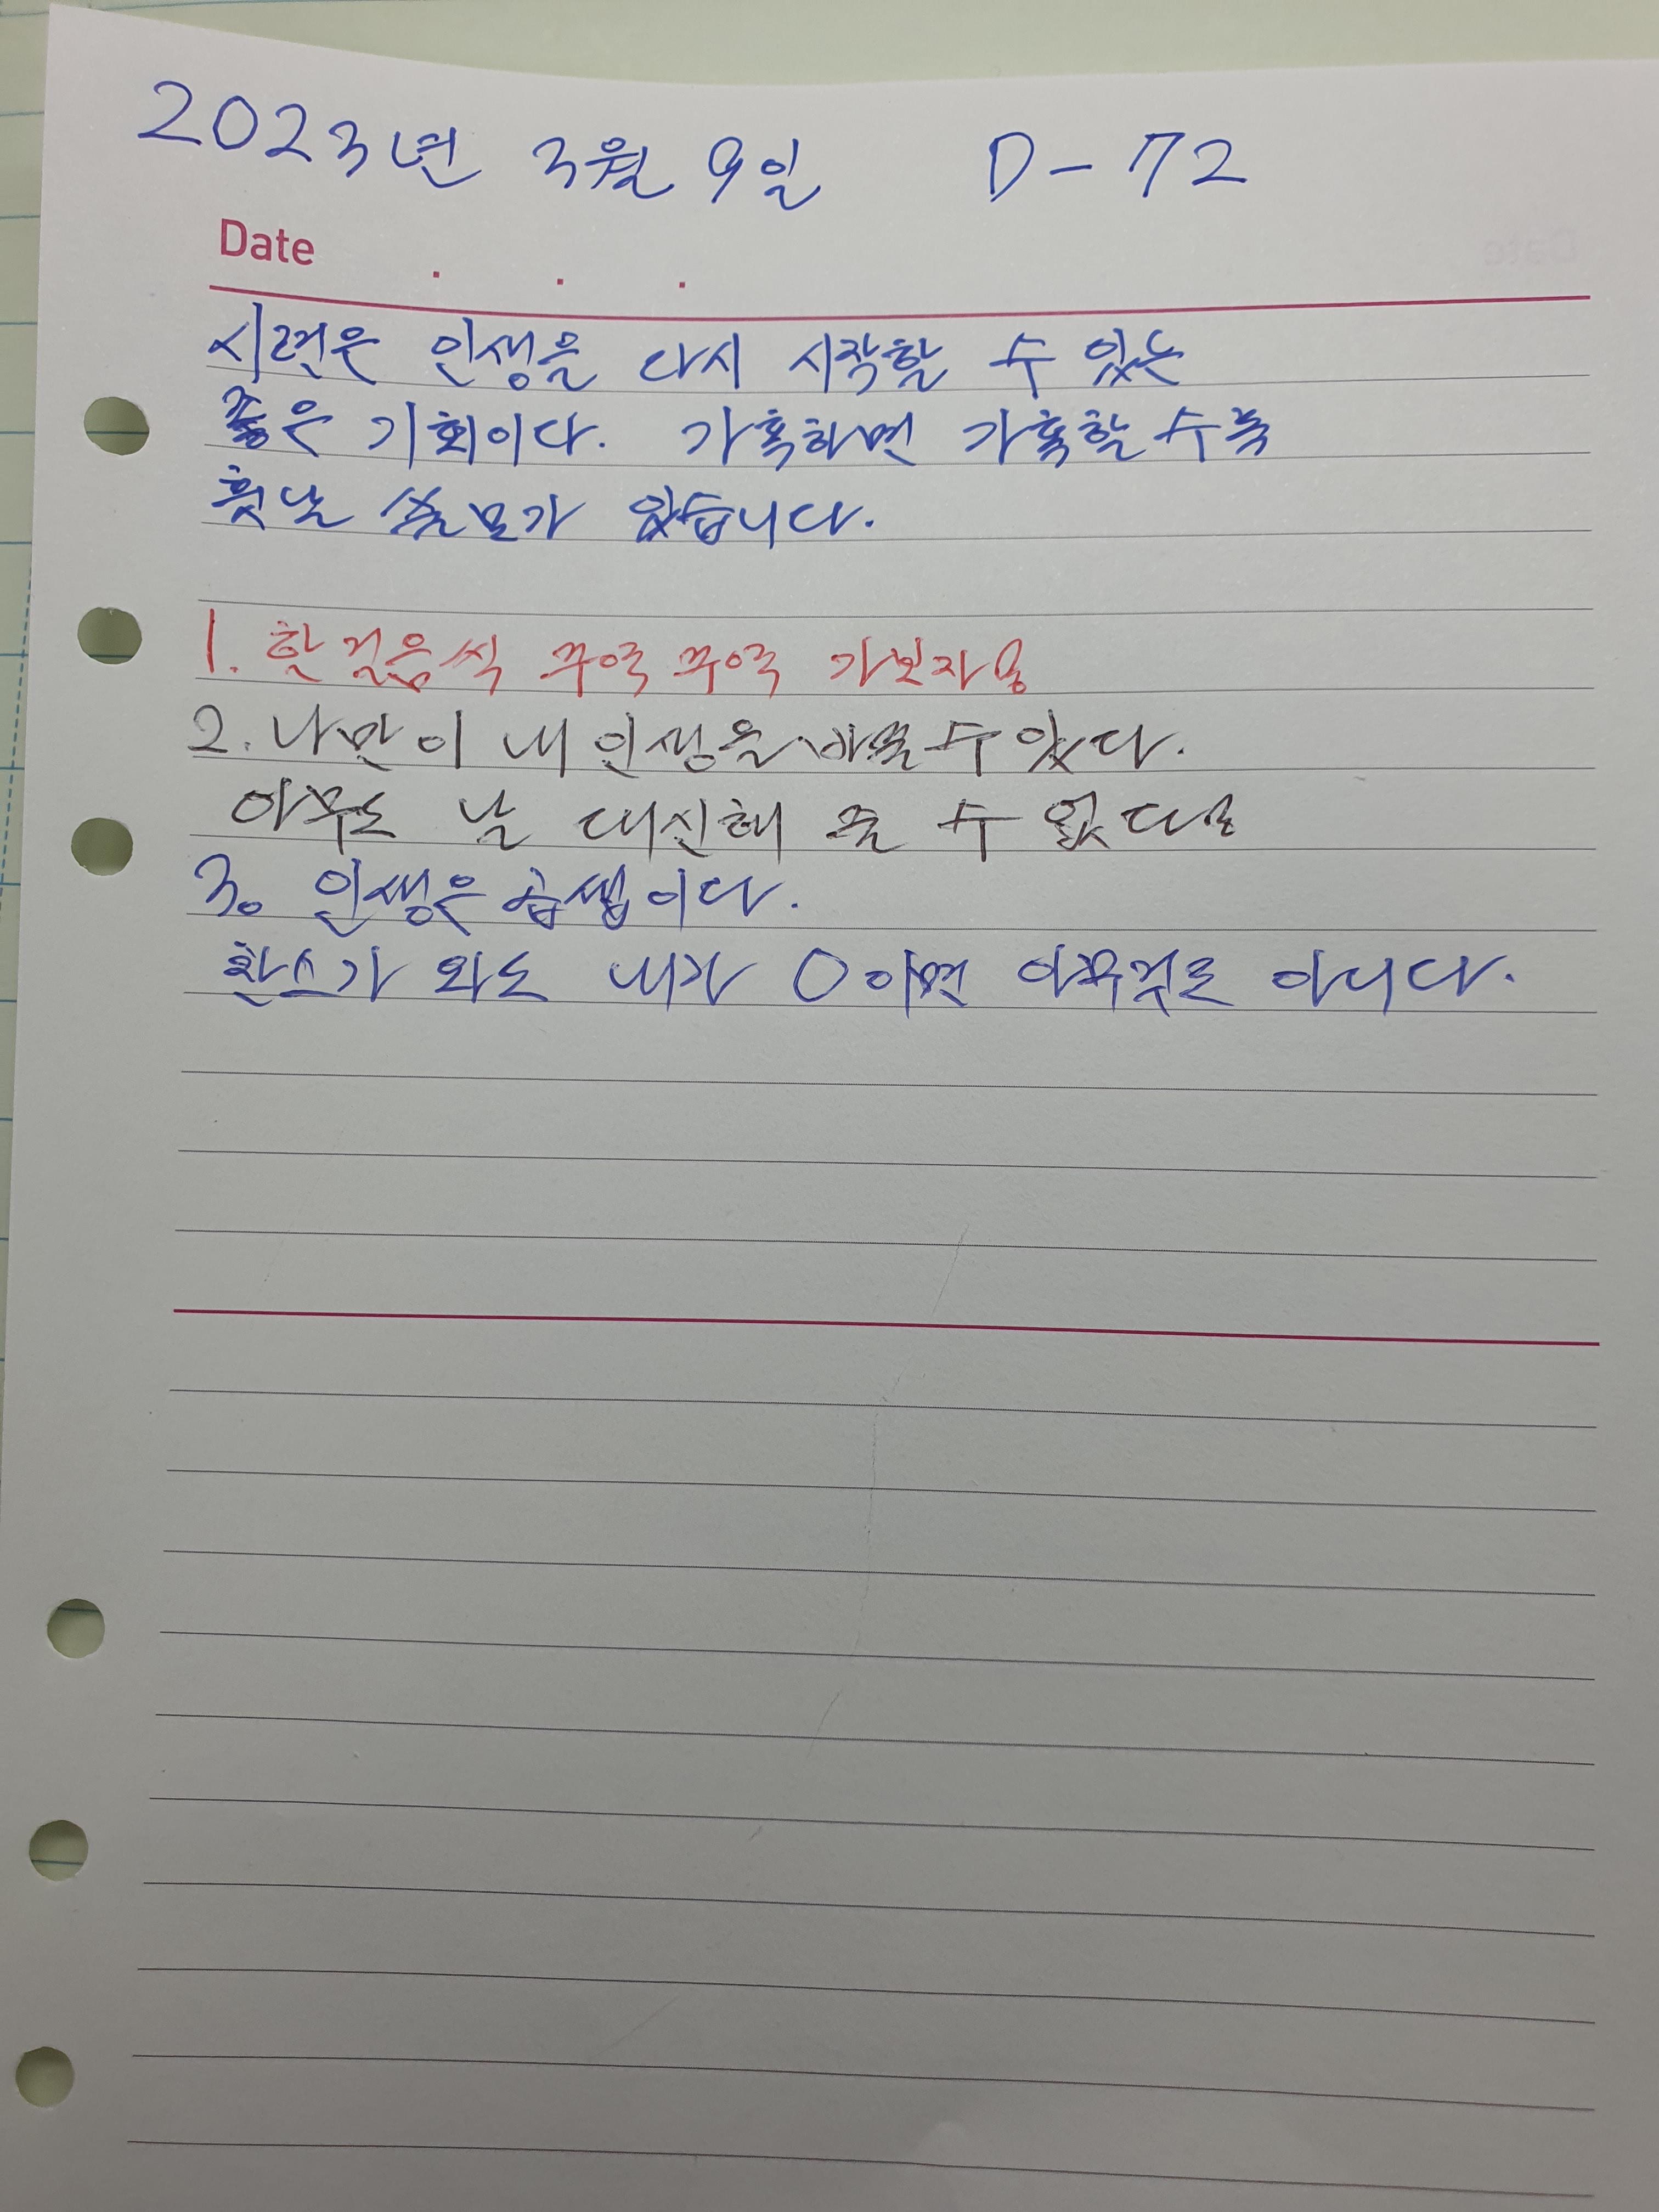 2023년 3월 9일 D-72
Date . . .
시련은 인생을 다시 시작할 수 있는
좋은 기회이다. 가혹하면 가혹할 수록
훗날 쓸모가 있습니다.
1. 한 걸음씩 꾸역꾸역 가보자
2. 나만이 내 인생을 바꿀 수 있다.
아무도 날 대신해 줄 수 없다
3. 인생은 곱셈이다.
찬스가 와도 내가 0이면 아무것도 아니다.